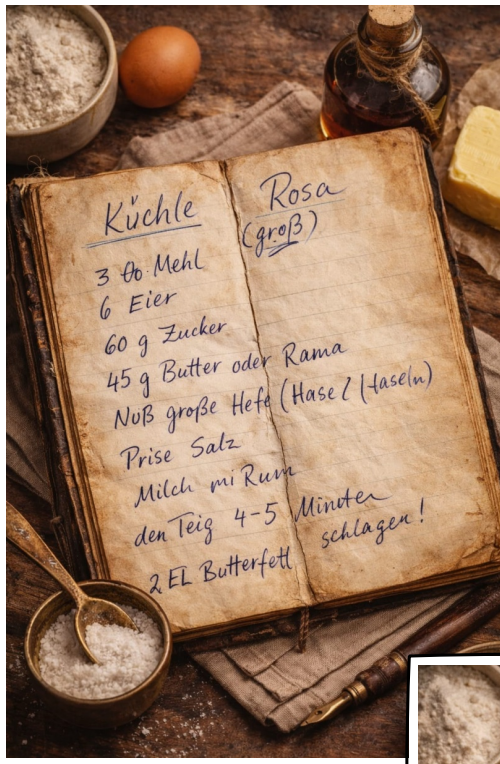 Küchle Rosa
(groß)
3 Mehl
6 Eier
60 g Zucker
45 g Butter oder Rama
Nuß große Hefe
Prise Salz
Milch mi Rum
den Teig 4-5 Minuten
schlagen!
2 EL Butterfett